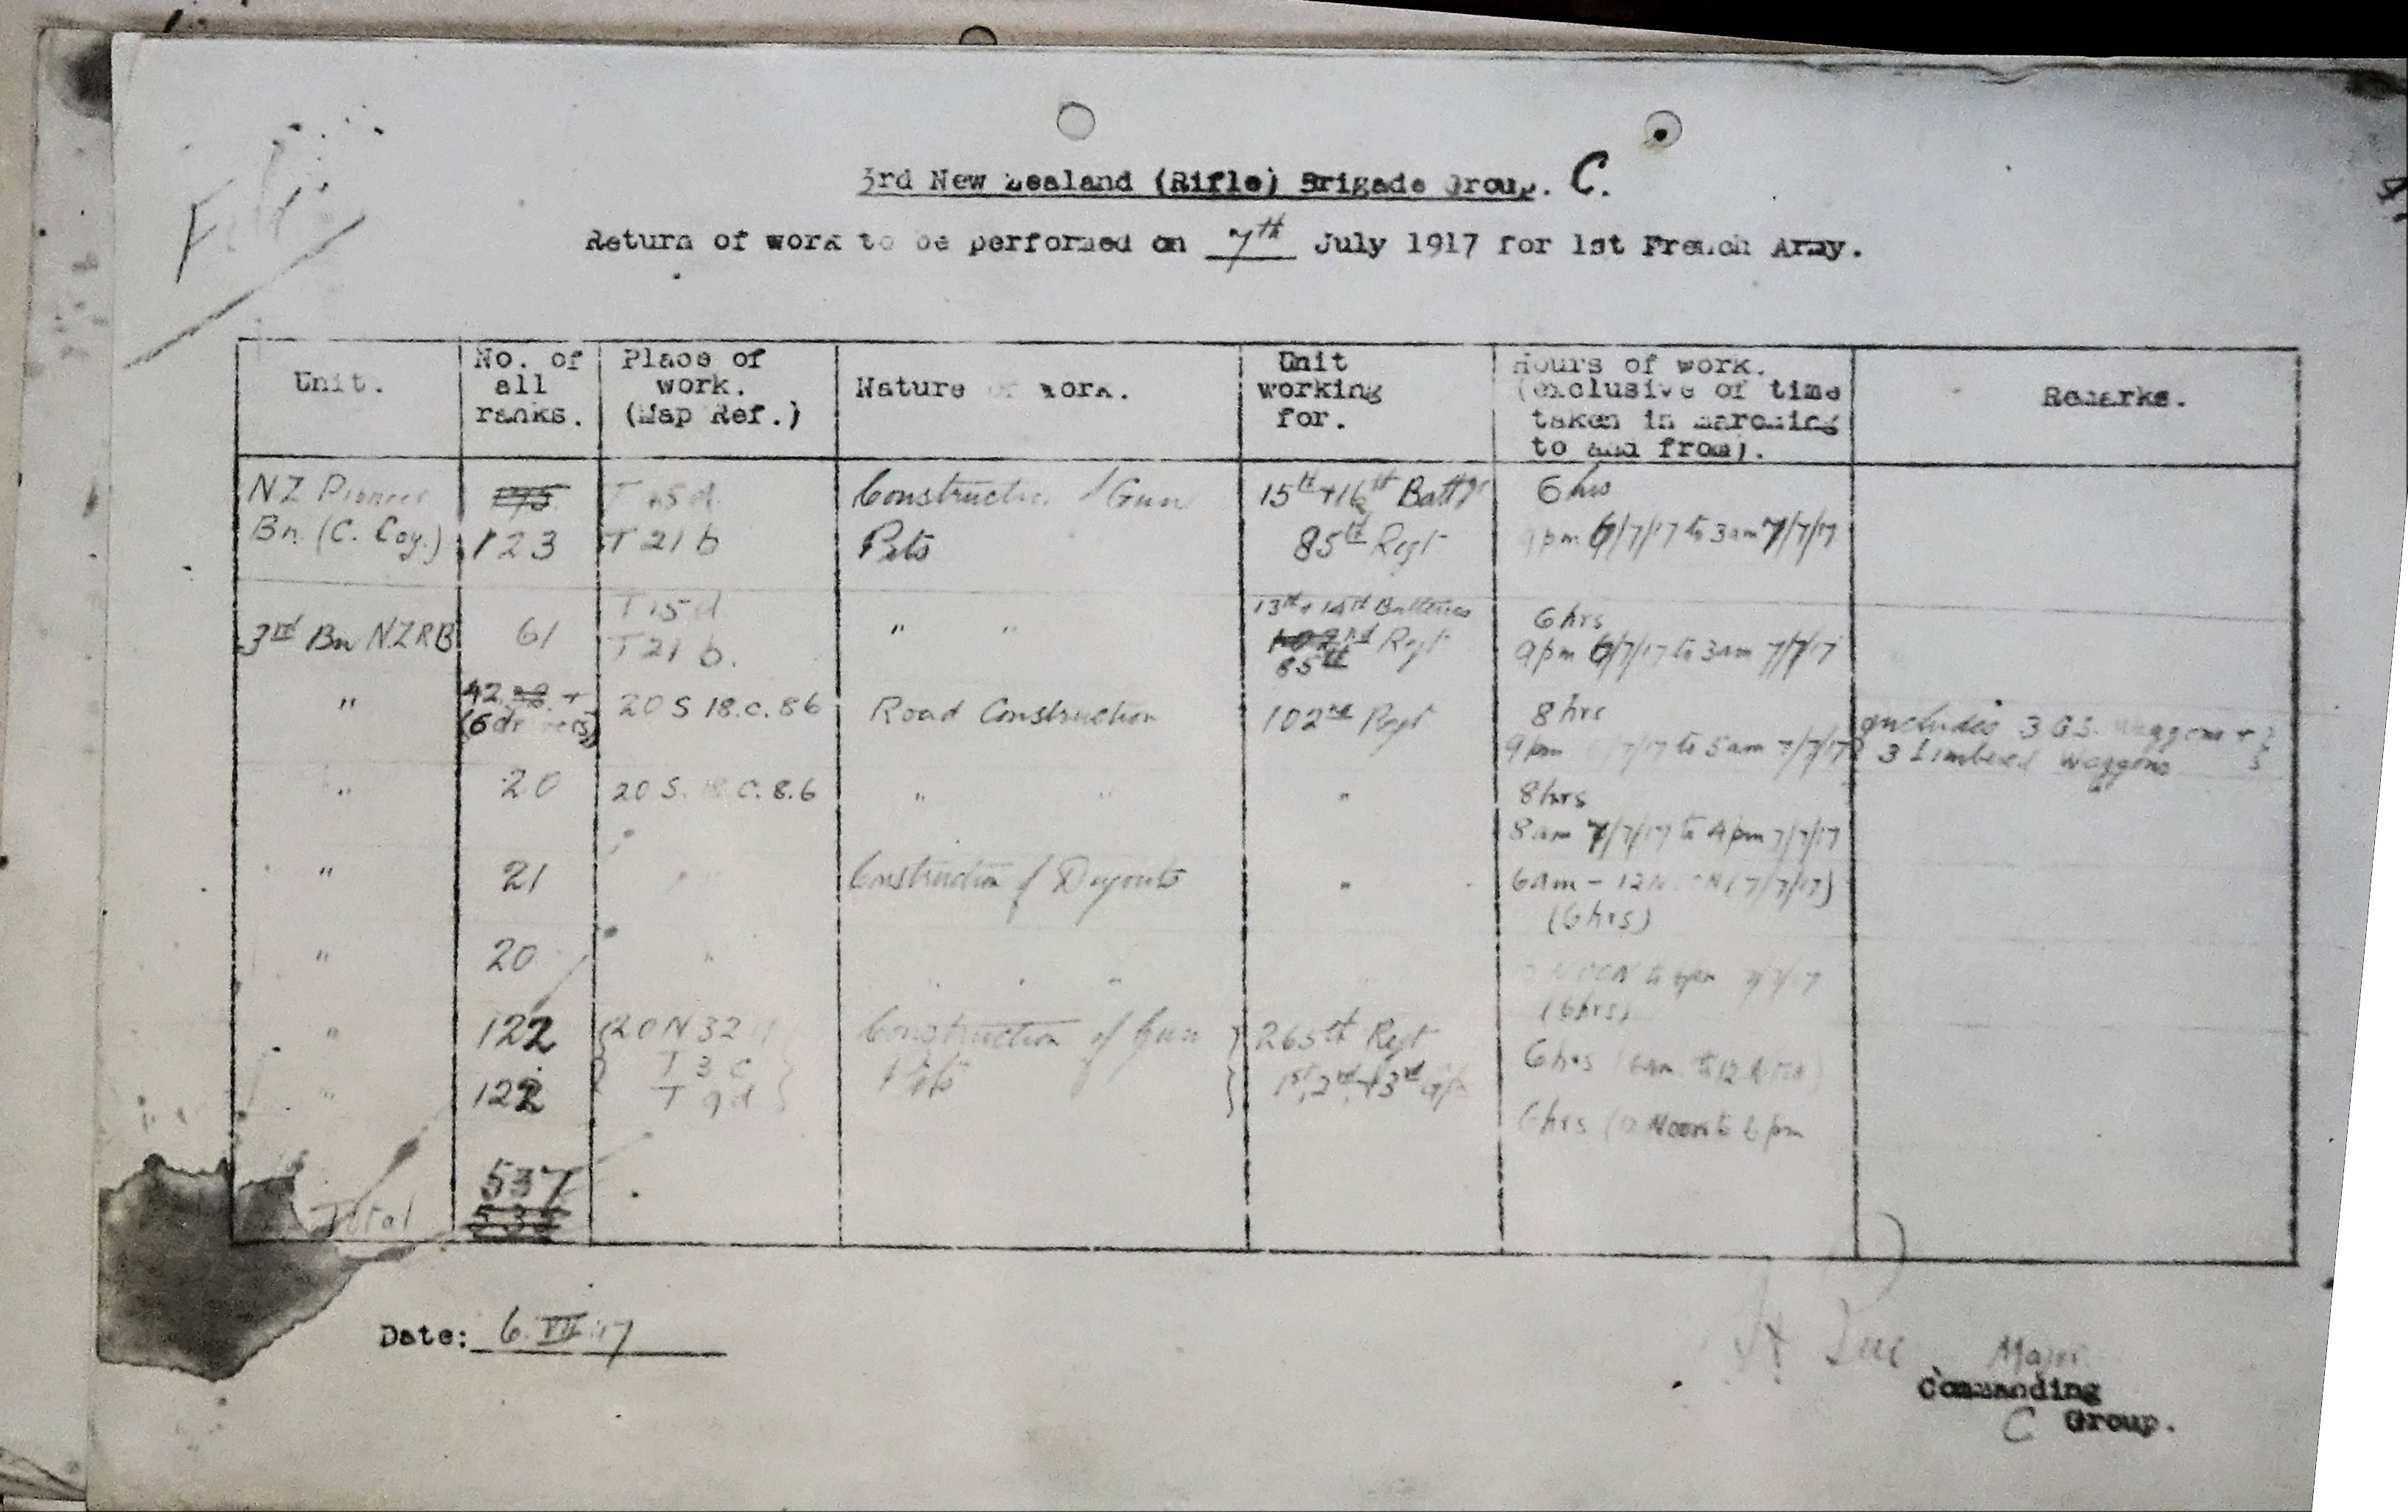 File
3rd New Zealand (Rifle) Brigade Group. C.
Return of work to be performed on 7th July 1917 for 1st French Army.
Unit.
No. of all ranks.
Place of work. (Map Ref.)
Nature of work.
Unit working for.
Hours of work. (exclusive of time taken in marching to and from).
Remarks.
NZ Pioneer T15d Construction of Gun 15th + 16th Batty 6 hrs
Bn. (C. Coy.) 123 T 21 b Pits 85th Regt 9pm 6/7/17 to 3am 7/7/17
T15d 13th + 14th Batteries 6 hrs
3rd Bn NZRB 61 T21 b. " " 102nd Regt 9pm 6/7/17 to 3am 7/7/17
85th
" 42 + 20 S 18.c.86 Road Construction 102nd Regt 8 hrs includes 3 G.S. waggons +
(6 drivers) 9pm 6/7/17 to 5am 7/7/17 3 Limbered Waggons
" 20 20 S. 18 C. 8.6 " " " 8 hrs
8am 7/7/17 to 4pm 7/7/17
" 21 " Construction of Dugouts " 6am - 12 NOON (7/7/17)
(6 hrs)
" 20 " " " " " 12 NOON to 6pm 7/7/17
(6hrs)
" 122 20 N 32 d Construction of Gun 265th Regt 6 hrs (6am to 12 NOON)
T 3 c Pits
" 122 T 9d 1st, 2nd + 3rd 6hrs (12 Noon to 6 pm
537
Total 535
Date: 6.VII.17
Major
Commanding
C Group.